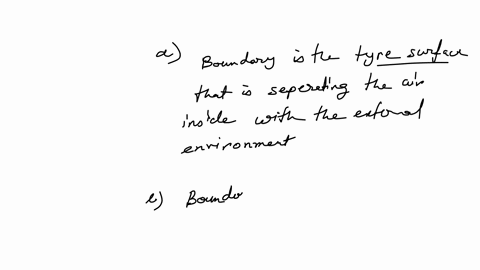 a) Boundory is the tyre surface
that is sepereting the air
inside with the external
environment
b) Boundo